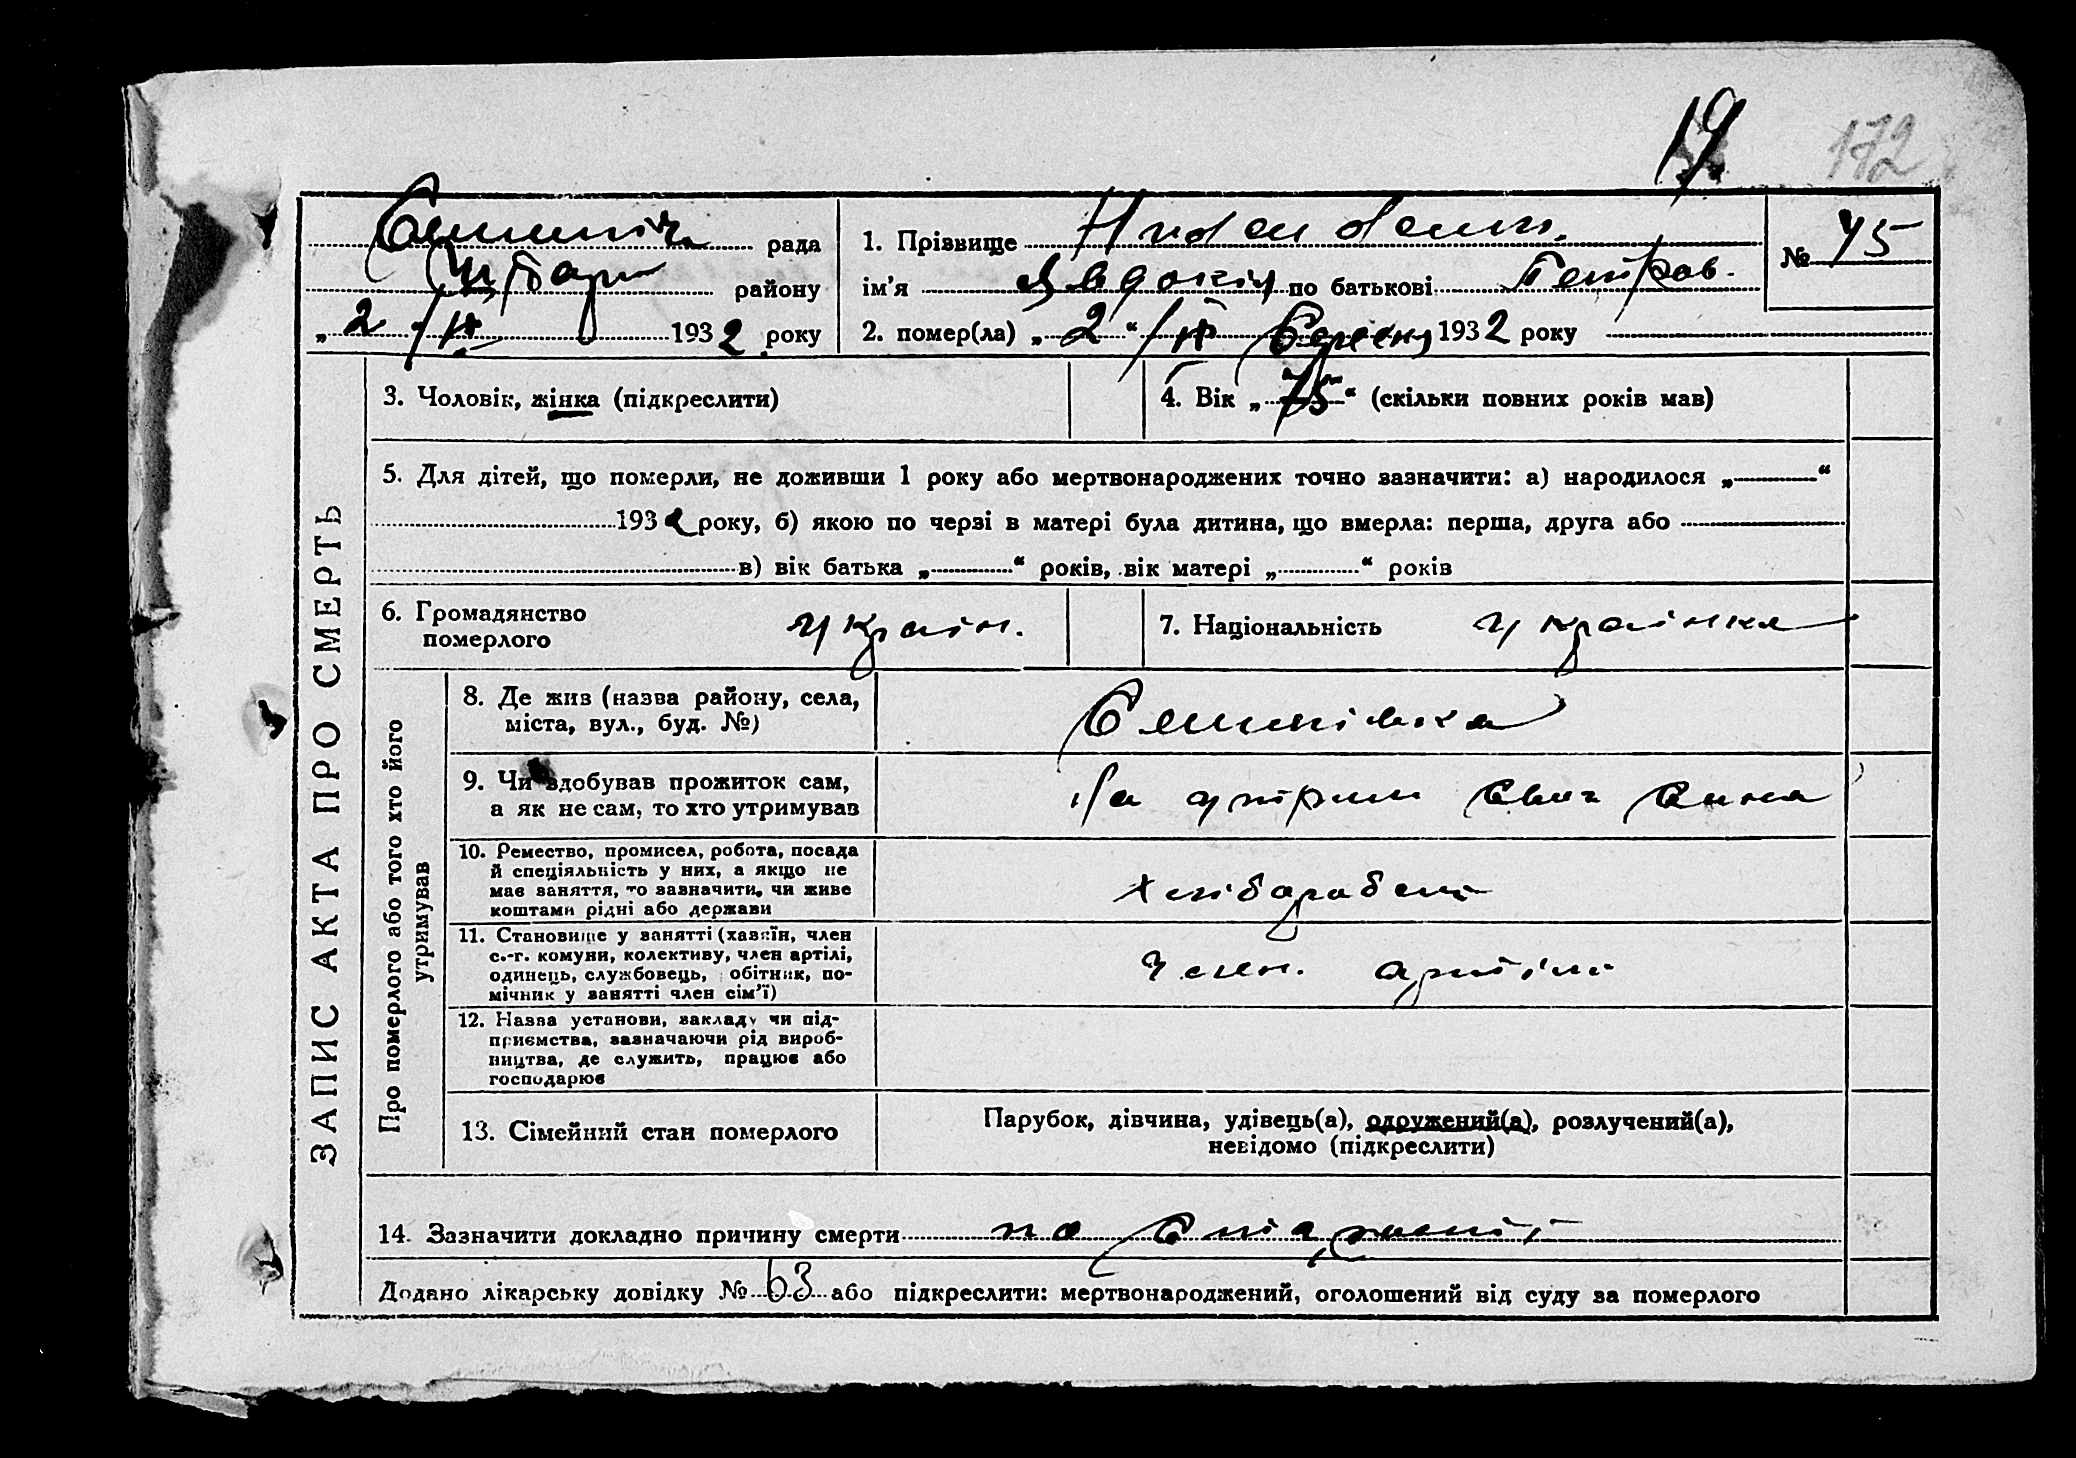 19 172
рада
району
„ 2 “ /ІХ 1932 року
1. Прізвище
№ 45
ім’я Явдокія по батькові Петров.
2. помер(ла) „ 2 “ /ІХ 1932 року
ЗАПИС АКТА ПРО СМЕРТЬ
3. Чоловік, жінка (підкреслити)
4. Вік „ 75 “ (скільки повних років мав)
5. Для дітей, що померли, не доживши 1 року або мертвонароджених точно зазначити: а) народилося „ “
1932 року, б) якою по черзі в матері була дитина, що вмерла: перша, друга або
в) вік батька „ “ років, вік матері „ “ років
6. Громадянство
померлого
україн.
7. Національність українка
Про померлого або того хто його
утримував
8. Де жив (назва району, села,
міста, вул., буд. №)
9. Чи здобував прожиток сам,
а як не сам, то хто утримував
На утрим свог сина
10. Ремество, промисел, робота, посада
й спеціяльність у них, а якщо не
мав заняття, то зазначити, чи живе
коштами рідні або держави
хлібароб
11. Становище у занятті (хазяїн, член
с.-г. комуни, колективу, член артілі,
одинець, службовець, робітник, по-
мічник у занятті член сім’ї)
член. артіли
12. Назва установи, закладу чи під-
приємства, зазначаючи рід вироб-
ництва, де служить, працює або
господарює
13. Сімейний стан померлого
Парубок, дівчина, удівець(а), одружений(а), розлучений(а),
невідомо (підкреслити)
14. Зазначити докладно причину смерти по
Додано лікарську довідку № 63 або підкреслити: мертвонароджений, оголошений від суду за померлого